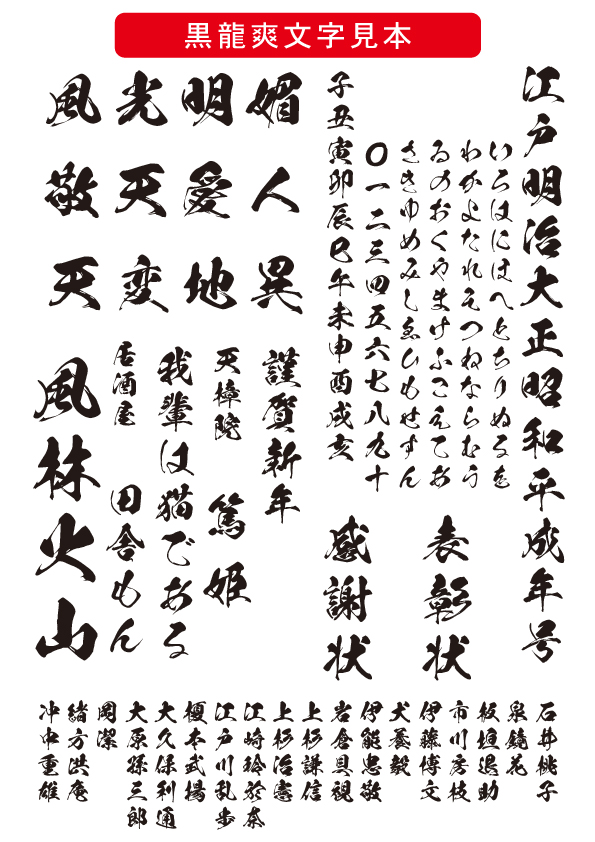 黒龍爽文字見本
江戸明治大正昭和平成年号
いろはにほへとちりぬるを
わかよたれそつねならむう
ゐのおくやまけふこえてあ
さきゆめみしゑひもせすん
〇一二三四五六七八九十
子丑寅卯辰巳午未申酉戌亥
表彰状
感謝状
媚人異
明愛地
光天変
風敬天
謹賀新年
天樟院 篤姫
我輩は猫である
居酒屋 田舎もん
風林火山
石井桃子
泉鏡花
板垣退助
市川房枝
伊藤博文
犬養毅
伊能忠敬
岩倉具視
上杉謙信
上杉治憲
江崎玲於奈
江戸川乱歩
榎本武揚
大久保利通
大原孫三郎
岡潔
緒方洪庵
沖中重雄